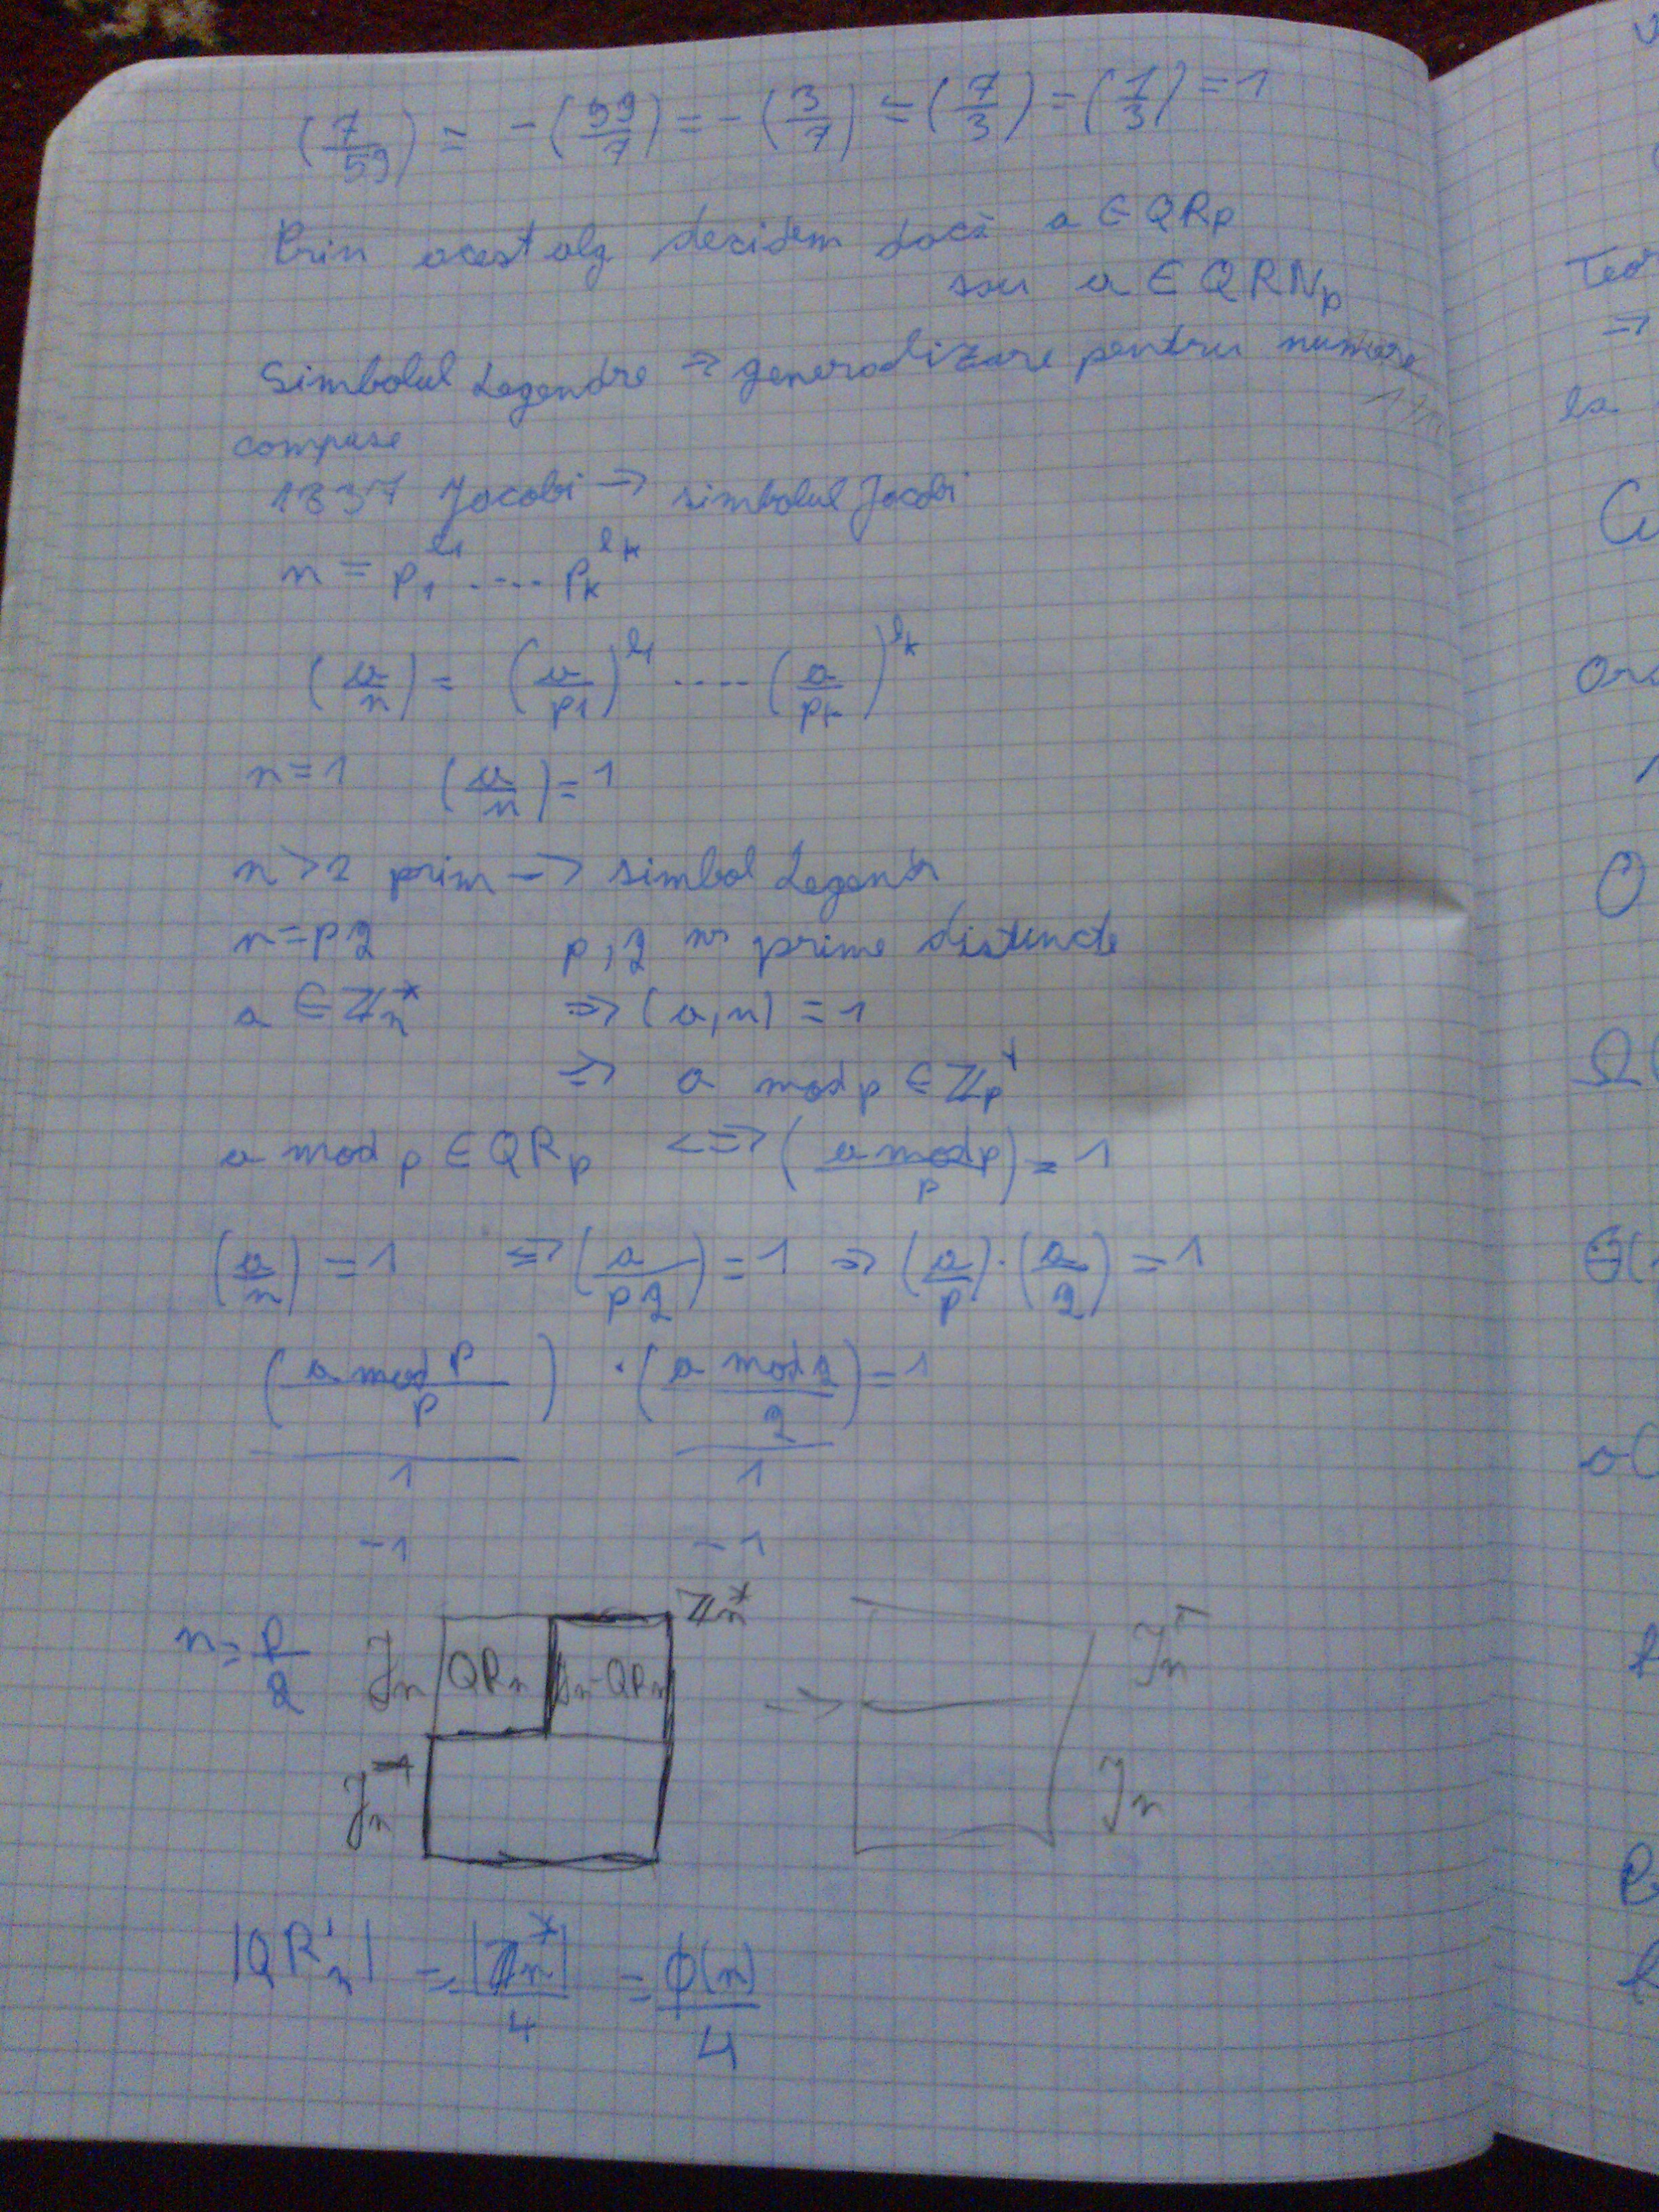 (7/59) = -(59/7) = -(3/7) = (7/3) = (1/3) = 1
Prin acest alg decidem dacă a ∈ QR_p
sau a ∈ QRN_p
Simbolul Legendre ⇒ generalizare pentru numere
compuse
1837 Jacobi → simbolul Jacobi
n = p_1^{e_1} .... p_k^{e_k}
(a/n) = (a/p_1)^{e_1} .... (a/p_k)^{e_k}
n=1 (a/n)=1
n>2 prim → simbol Legendr
n=pq p,q nr prime distincte
a ∈ ℤ_n^* ⇒ (a,n) = 1
⇒ a mod p ∈ ℤ_p^*
a mod p ∈ QR_p <=> (a mod p/p) = 1
(a/n) = 1 ⇒ (a/pq) = 1 ⇒ (a/p)·(a/q) = 1
(a mod p/p) · (a mod q/q) = 1
1 1
-1 -1
ℤ_n^*
n = p/q J_n QR_n J_n-QR_n → J_n^-
J_n^- J_n
|QR_n| = |ℤ_n^*|/4 = ϕ(n)/4
Teor
⇒
la
Ω(
Θ(
o(